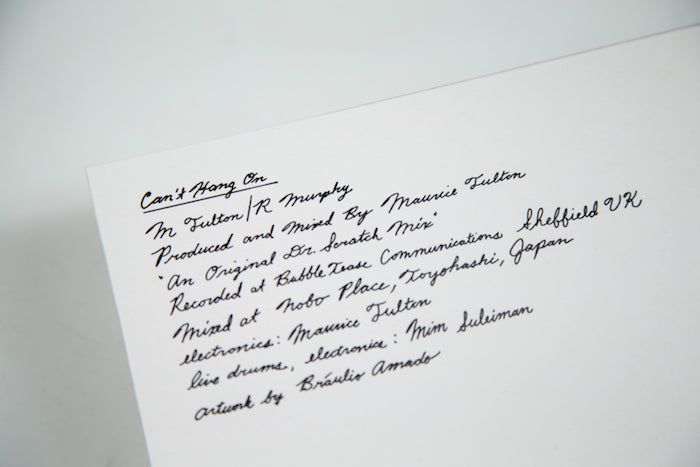 Can't Hang On
M Fulton/R Murphy
Produced and Mixed By Maurice Fulton
"An Original Dr. Scratch Mix"
Recorded at BubbleTease Communications Sheffield UK
Mixed at nobo Place, Toyohashi, Japan
electronics: Maurice Fulton
live drums, electronics: Mim Suleiman
artwork by Bráulio Amado